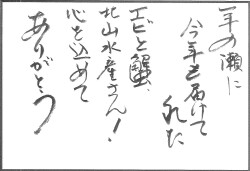 年の瀬に
今年も届けて
くれた
エビと蟹、
北山水産さん！
心を込めて
ありがとう